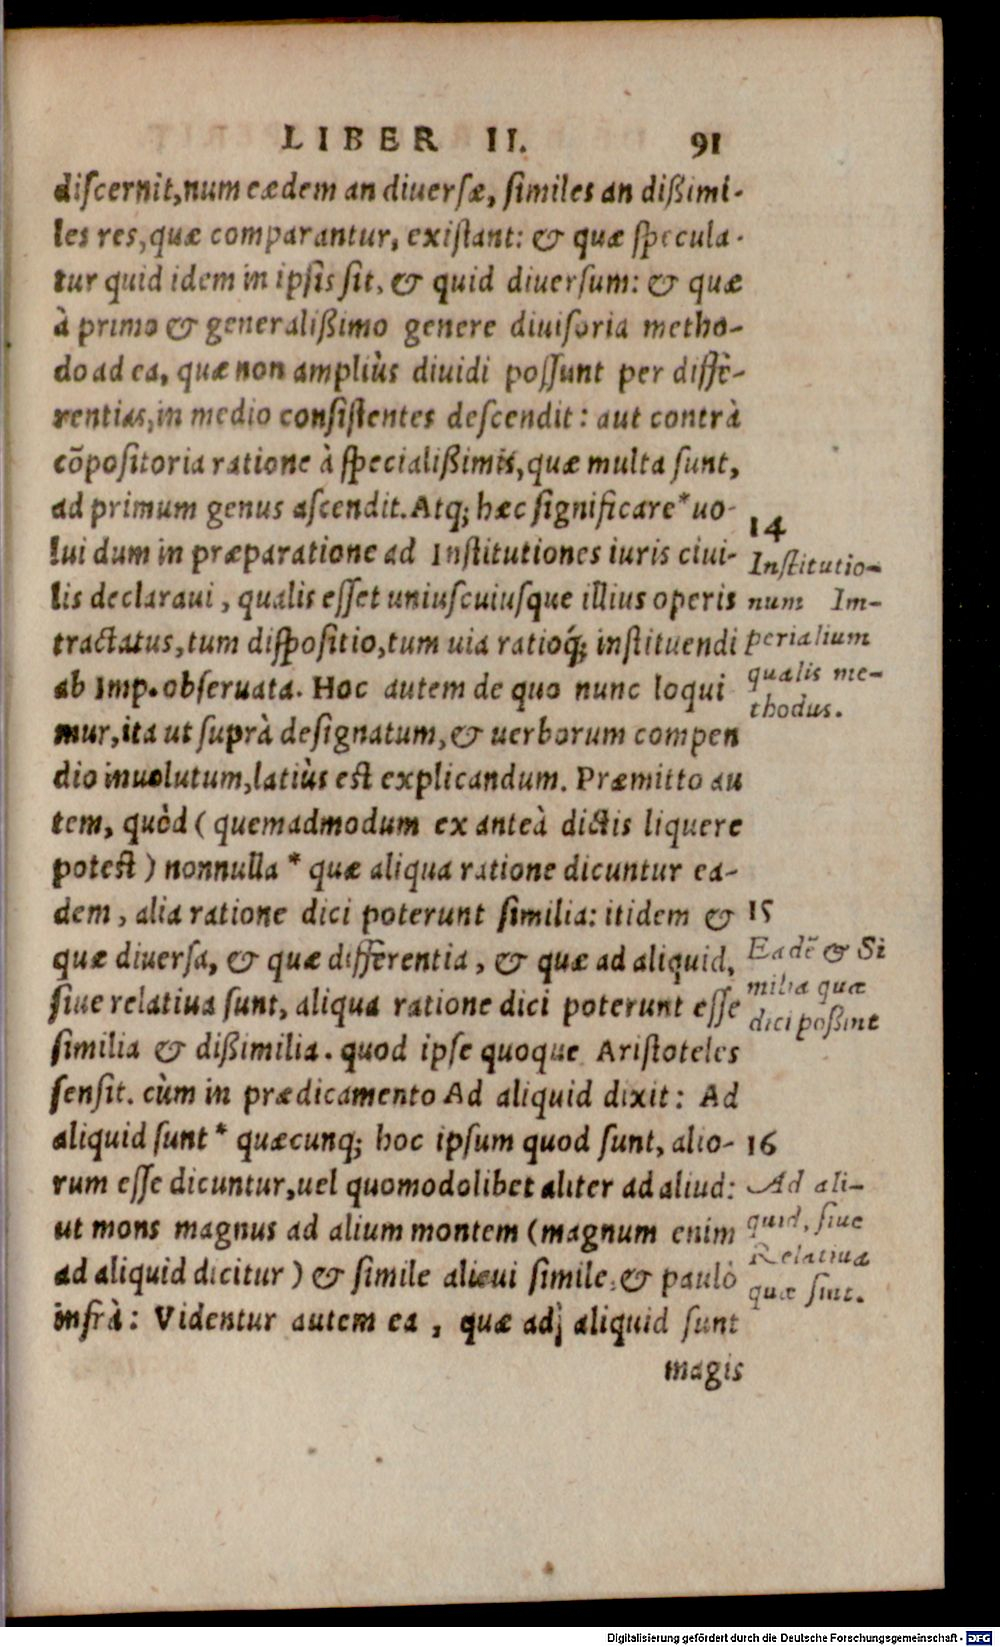 LIBER II. 91
discernit, num eædem an diuersæ, similes an dißimi-
les res, quæ comparantur, existant: & quæ specula-
tur quid idem in ipsis sit, & quid diuersum: & quæ
à primo & generalißimo genere diuisoria metho-
do ad ea, quæ non ampliùs diuidi possunt per diffe-
rentias, in medio consistentes descendit: aut contrà
cõpositoria ratione à specialißimis, quæ multa sunt,
ad primum genus ascendit. Atq; hæc significare * uo-
lui dum in præparatione ad Institutiones iuris ciui-
lis declaraui, qualis esset uniuscuiusque illius operis
tractatus, tum dispositio, tum uia ratioq́; instituendi
ab Imp. obseruata. Hoc autem de quo nunc loqui
mur, ita ut suprà designatum, & uerborum compen
dio inuolutum, latiùs est explicandum. Præmitto au
tem, quòd ( quemadmodum ex anteà dictis liquere
potest ) nonnulla * quæ aliqua ratione dicuntur ea-
dem, alia ratione dici poterunt similia: itidem &
quæ diuersa, & quæ differentia, & quæ ad aliquid,
siue relatiua sunt, aliqua ratione dici poterunt esse
similia & dißimilia. quod ipse quoque Aristoteles
sensit. cùm in prædicamento Ad aliquid dixit: Ad
aliquid sunt * quæcunq; hoc ipsum quod sunt, alio-
rum esse dicuntur, uel quomodolibet aliter ad aliud:
ut mons magnus ad alium montem (magnum enim
ad aliquid dicitur) & simile alicui simile. & paulò
infrà: Videntur autem ea, quæ ad aliquid sunt
magis
14
Institutio-
num Im-
perialium
qualis me-
thodus.
15
Eadẽ & Si
milia quæ
dici poßint
16
Ad ali-
quid, siue
Relatiua
quæ sint.
Digitalisierung gefördert durch die Deutsche Forschungsgemeinschaft - DFG